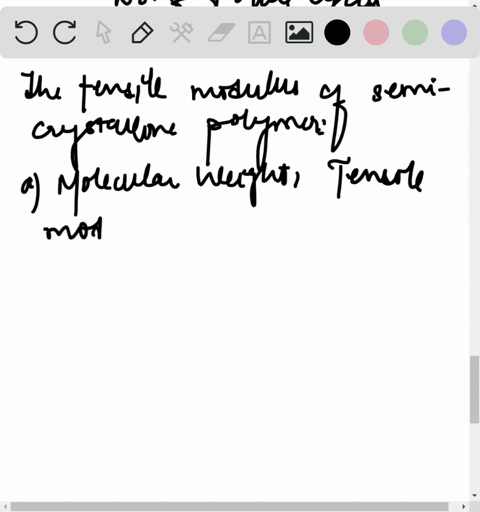 The tensile modulus of semi-
crystallone polymer:
a) Molecular Weight, Tensole
mod